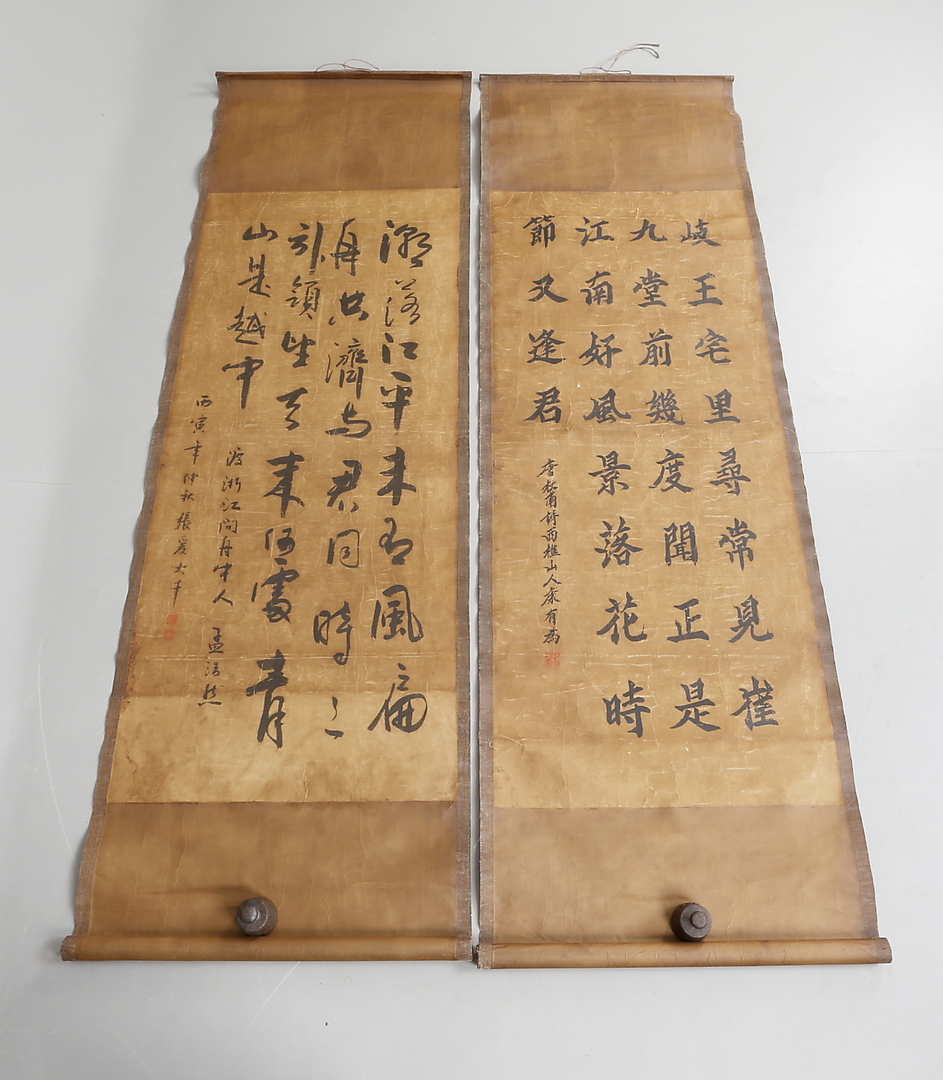 岐王宅里尋常見崔
九堂前幾度聞正是
江南好風景落花時
節又逢君
唐杜甫詩西樵山人康有為
潮落江平未有風扁
舟共濟与君同時々
引領望天末何處青
山是越中
渡浙江問舟中人 孟浩然
丙寅年仲秋張爰大千